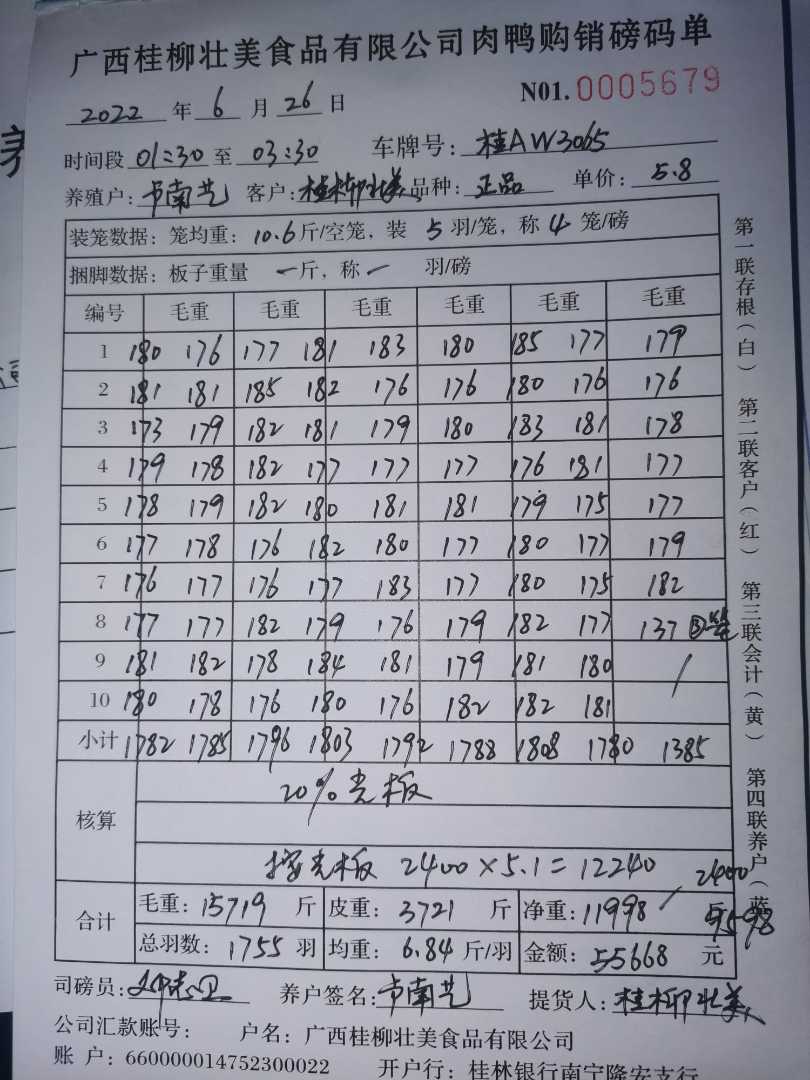 广西桂柳壮美食品有限公司肉鸭购销磅码单
2022 年 6 月 26 日 N01. 0005679
时间段 01:30 至 03:30 车牌号: 桂AW3065
养殖户: 韦南艺 客户: 桂柳壮美 品种: 正品 单价: 5.8
装笼数据: 笼均重: 10.6 斤/空笼, 装 5 羽/笼, 称 4 笼/磅
捆脚数据: 板子重量 一 斤, 称 一 羽/磅
编号 毛重 毛重 毛重 毛重 毛重 毛重
1 180 176 177 181 183 180 185 177 179
2 181 181 185 182 176 176 180 176 176
3 173 179 182 181 179 180 183 181 178
4 179 178 182 177 177 177 176 181 177
5 178 179 182 180 181 181 179 175 177
6 177 178 176 182 180 177 180 177 179
7 176 177 176 177 183 177 180 175 182
8 177 177 182 179 176 179 182 177 137 ③笼
9 181 182 178 184 181 179 181 180 /
10 180 178 176 180 176 182 182 181
小计 1782 1785 1796 1803 1792 1788 1808 1780 1385
核算
20%壳板
壳板 2400×5.1=12240
合计
毛重: 15719 斤 皮重: 3721 斤 净重: 11998 / 2400 斤 9598
总羽数: 1755 羽 均重: 6.84 斤/羽 金额: 55668 元
司磅员: 养户签名: 韦南艺 提货人: 桂柳壮美
公司汇款账号: 户名: 广西桂柳壮美食品有限公司
账 户: 660000014752300022 开户行: 桂林银行南宁隆安支行
第一联存根(白) 第二联客户(红) 第三联会计(黄) 第四联养户(蓝